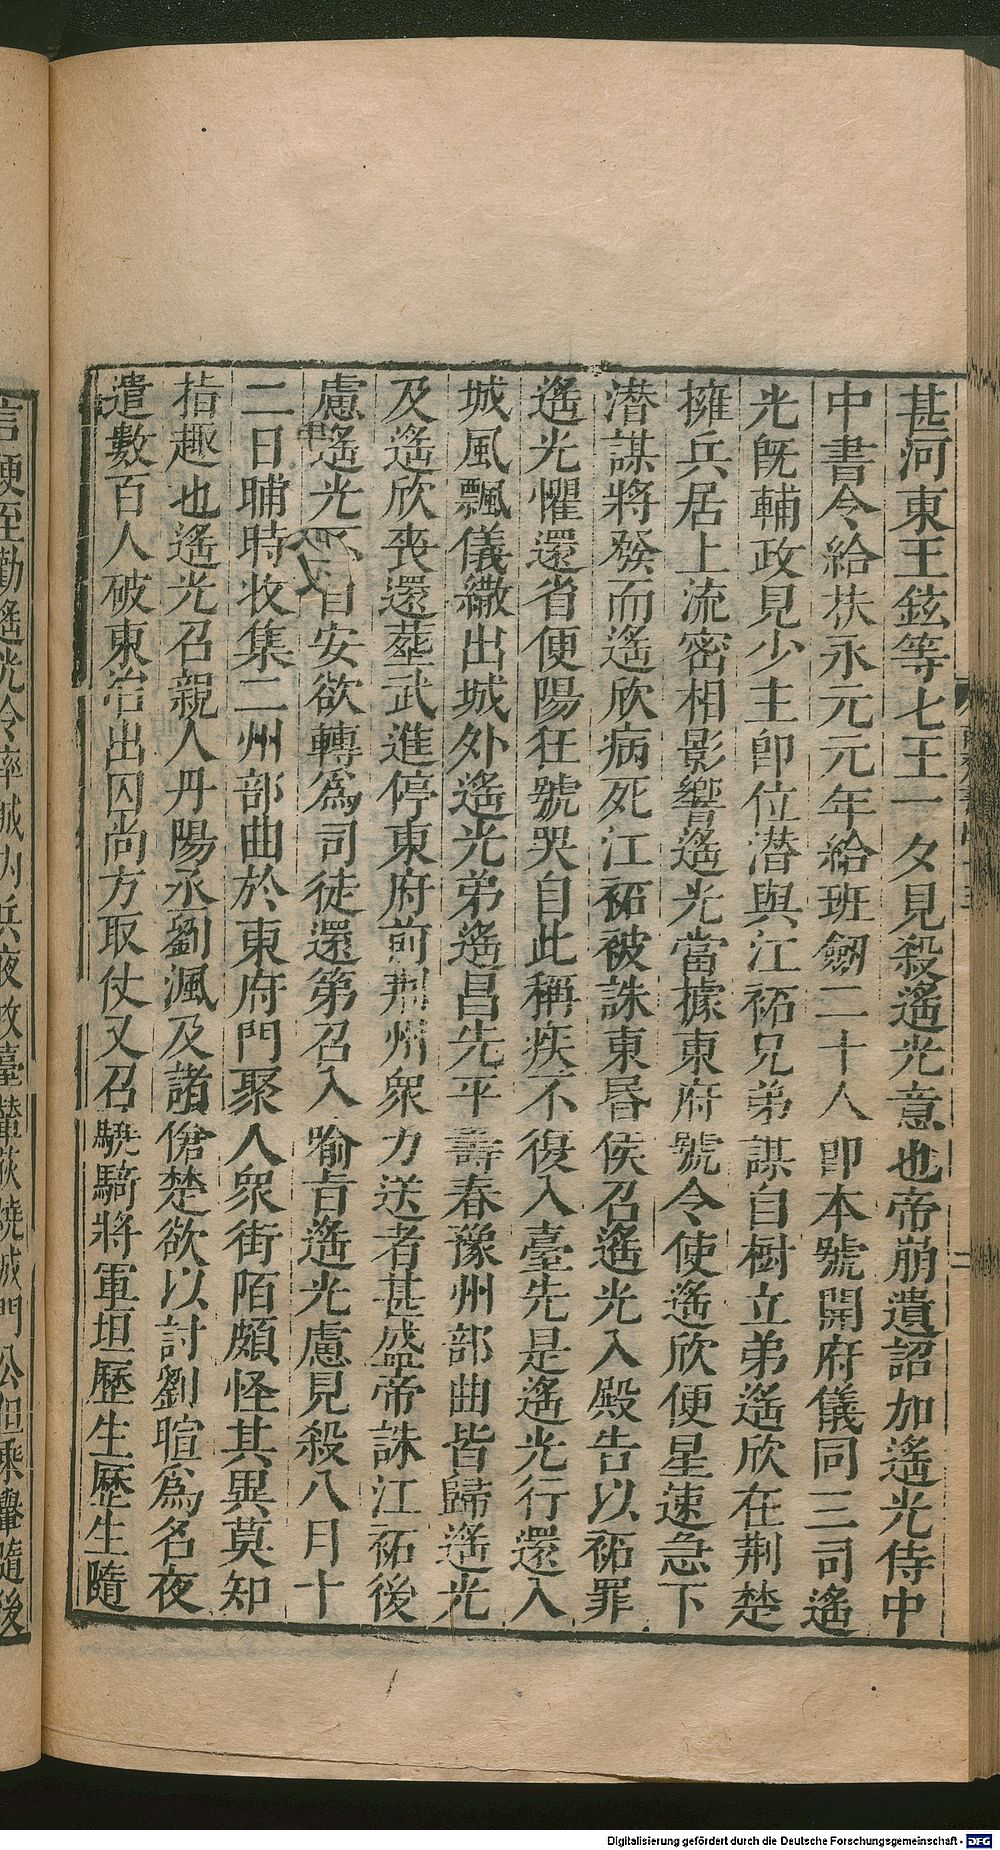 甚河東王鉉等七王一夕見殺遙光意也帝崩遺詔加遙光侍中
中書令給扶永元元年給班劒二十人即本號開府儀同三司遙
光旣輔政見少主即位潜與江祏兄弟謀自樹立弟遙欣在荆楚
擁兵居上流密相影響遙光當據東府號令使遙欣便星速急下
潜謀將發而遙欣病死江祏被誅東昬侯召遙光入殿告以祏罪
遙光懼還省便陽狂號哭自此稱疾不復入臺先是遙光行還入
城風飄儀繖出城外遙光弟遙昌先平壽春豫州部曲皆歸遙光
及遙欣喪還塟武進停東府前荆州衆力送者甚盛帝誅江祏後
慮遙光不自安欲轉為司徒還第召入喻旨遙光慮見殺八月十
二日晡時收集二州部曲於東府門聚人衆街陌頗怪其異莫知
指趣也遙光召親人丹陽丞劉渢及諸傖楚欲以討劉暄為名夜
遣數百人破東冶出囚尚方取仗又召驍騎將軍垣歷生歷生隨
信便至勸遙光令率城内兵夜攻臺輦荻燒城門公但乘轝隨後
Digitalisierung gefördert durch die Deutsche Forschungsgemeinschaft - DFG